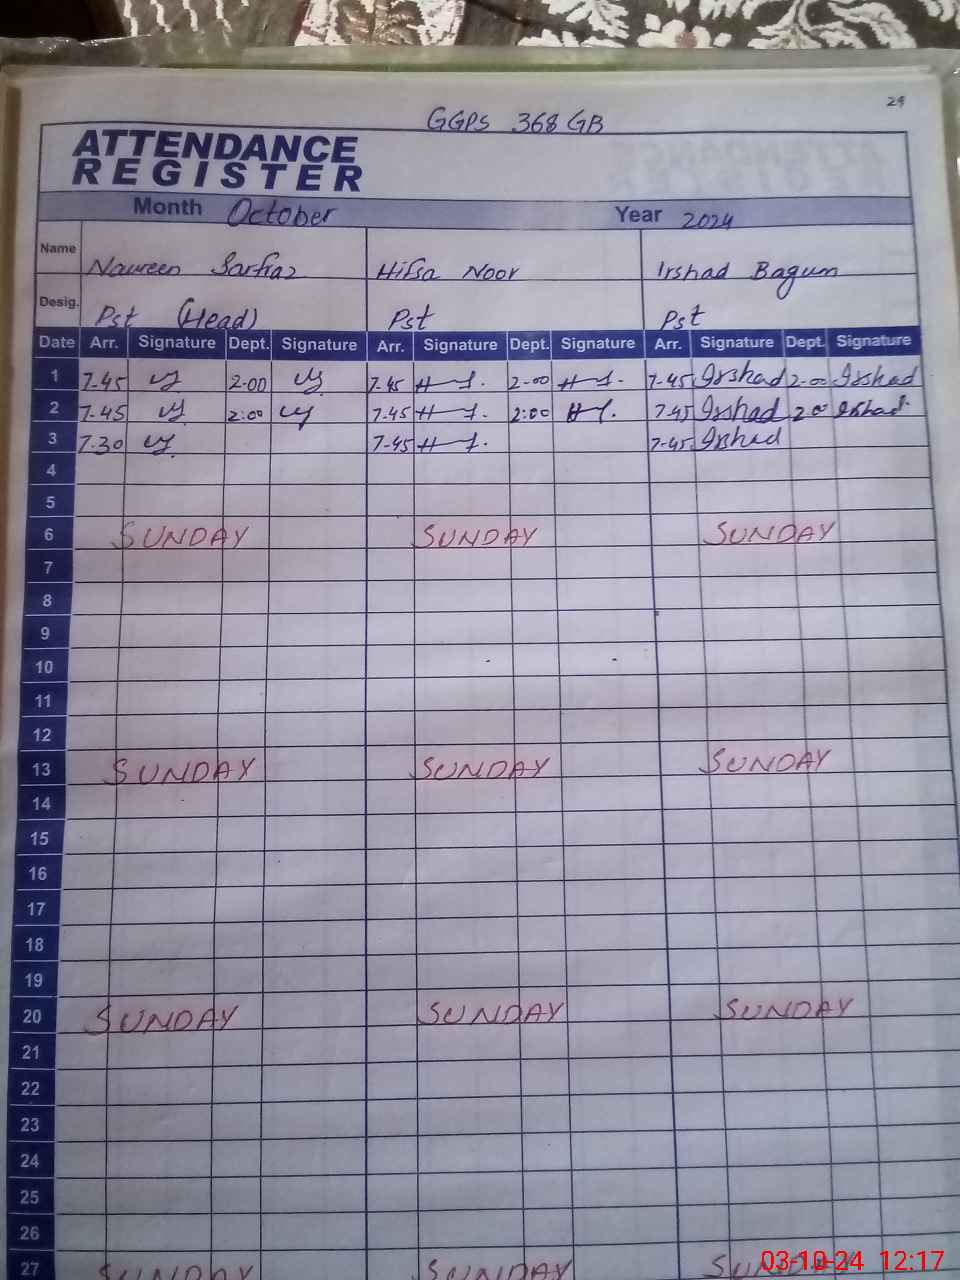 24
GGPS 368 GB
ATTENDANCE
REGISTER
Month October Year 2024
Name Naureen Sarfraz Hifsa Noor Irshad Bagum
Desig. Pst (Head) Pst Pst
Date Arr. Signature Dept. Signature Arr. Signature Dept. Signature Arr. Signature Dept. Signature
1 7-45 2-00 7-45 2-00 7-45 Irshad 2-00 Irshad
2 7-45 2:00 7-45 2:00 7-45 Irshad 2 00 Irshad
3 7-30 7-45 7-45 Irshad
4
5
6 SUNDAY SUNDAY SUNDAY
7
8
9
10
11
12
13 SUNDAY SUNDAY SUNDAY
14
15
16
17
18
19
20 SUNDAY SUNDAY SUNDAY
21
22
23
24
25
26
27 SUNDAY SUNDAY SUNDAY
03-10-24 12:17